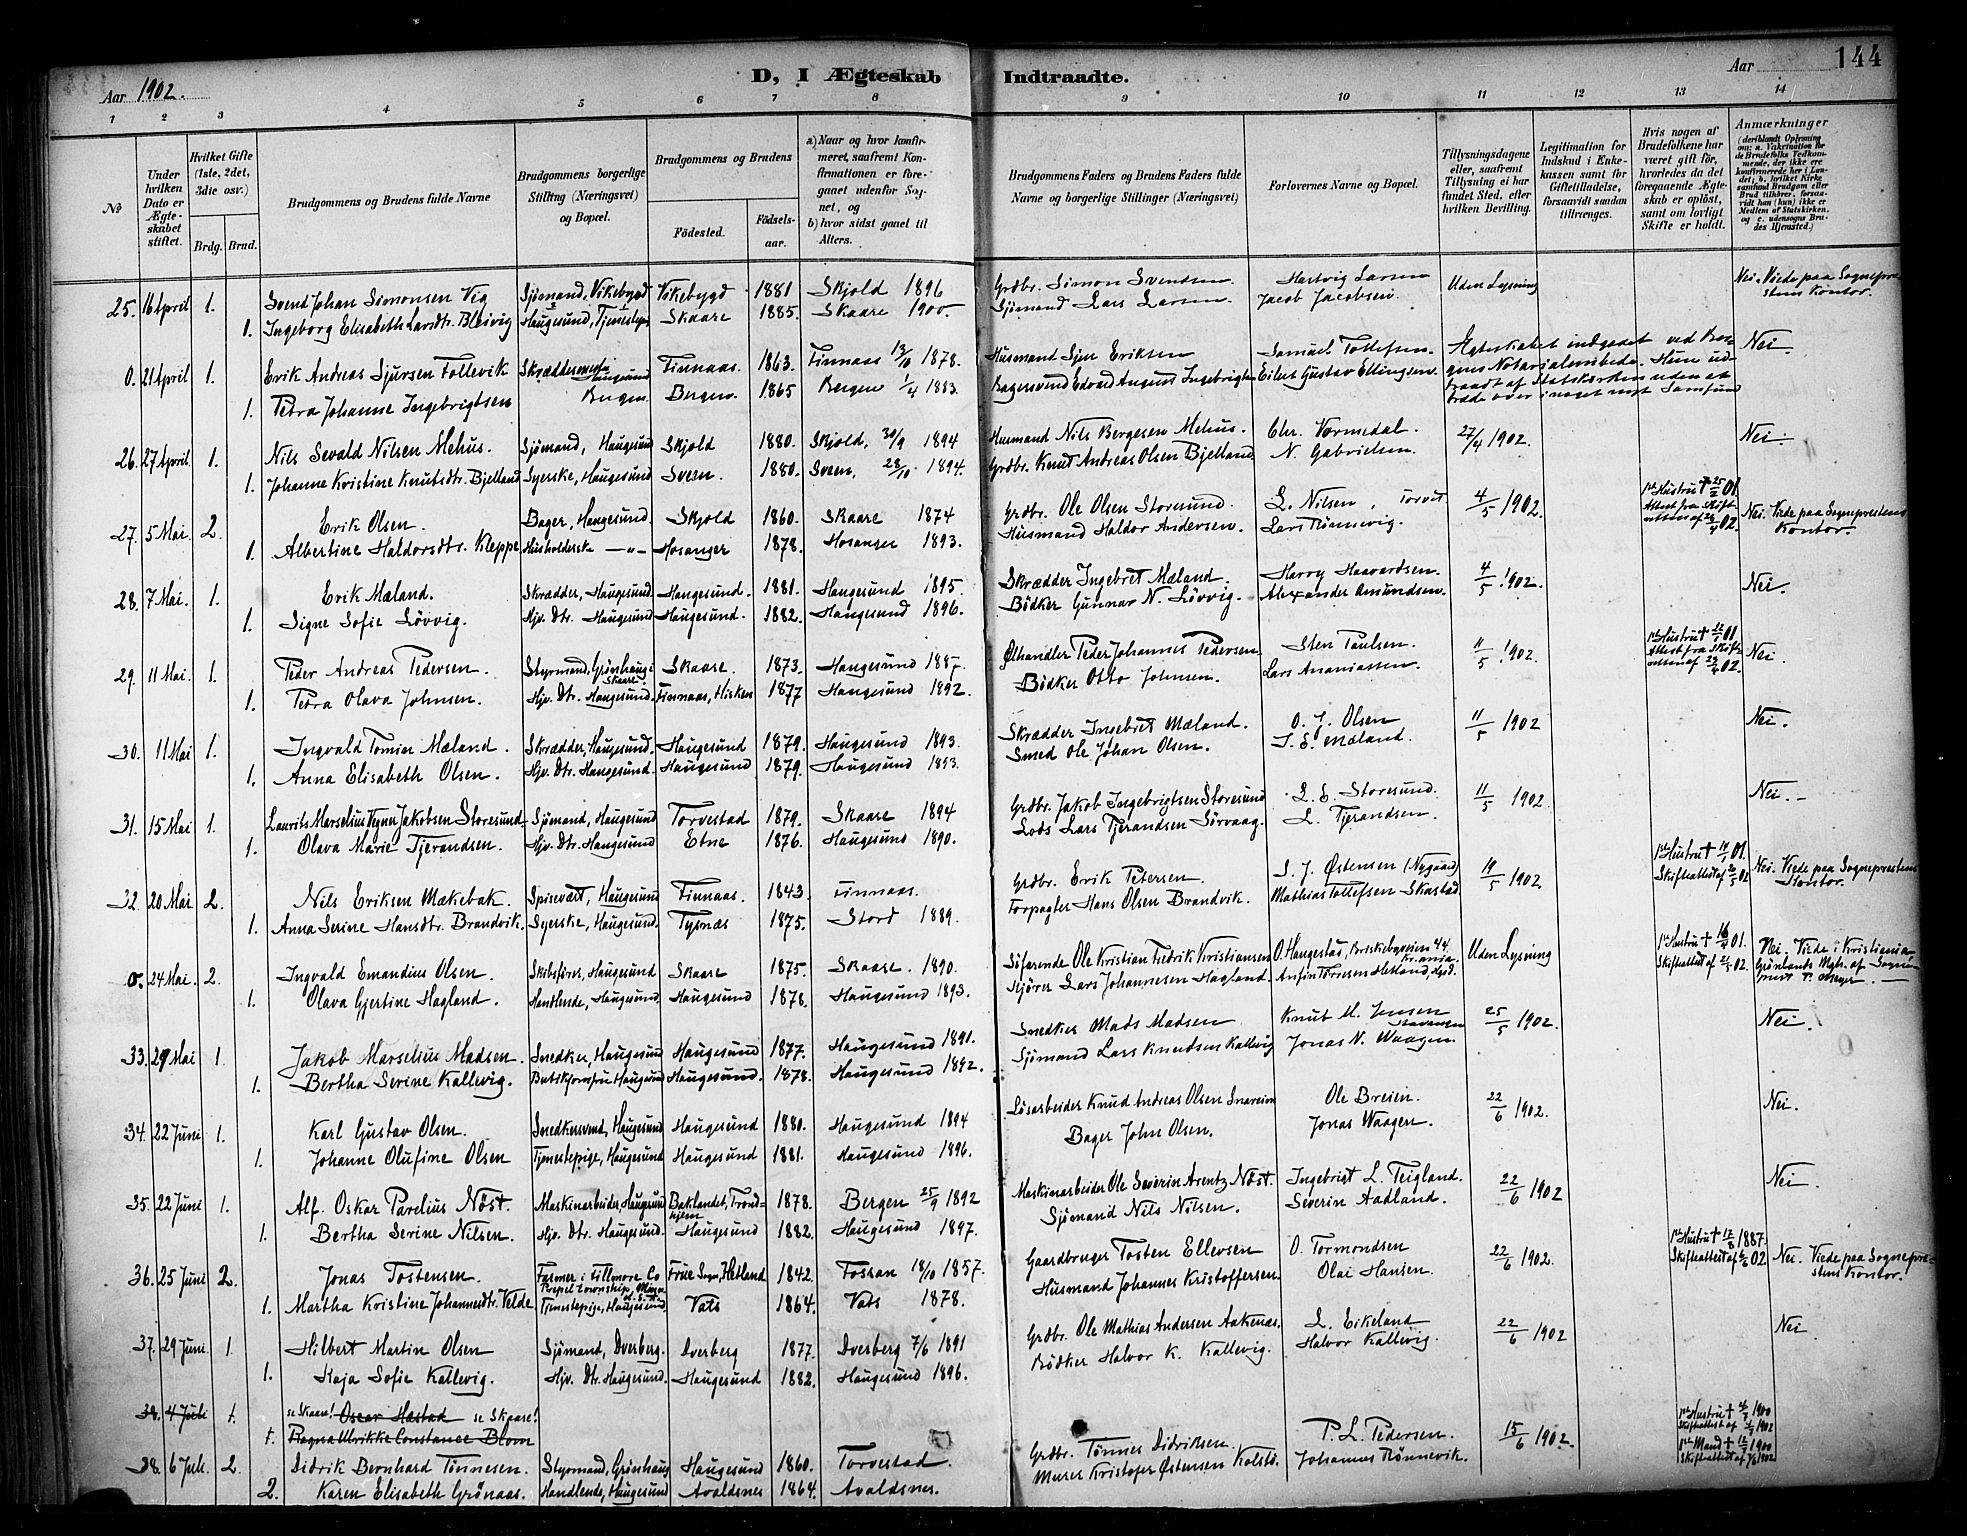 Aar 1902.
D, I Ægteskab Indtraadte.
Aar
144
1 2 3 4 5 6 7 8 9 10 11 12 13 14
No
Under hvilken Dato er Ægteskabet stiftet.
Hvilket Gifte (1ste, 2det, 3die osv.)
Brdg. Brud.
Brudgommens og Brudens fulde Navne
Brudgommens borgerlige Stilling (Næringsvei) og Bopæl.
Brudgommens og Brudens
Födested.
Födselsaar.
a) Naar og hvor konfirmeret, saafremt Konfirmationen er foregaaet udenfor Sognet, og
b) hvor sidst gaaet til Alters.
Brudgommens Faders og Brudens Faders fulde Navne og borgerlige Stillinger (Næringsvei)
Forlovernes Navne og Bopæl.
Tillysningsdagene eller, saafremt Tillysning ei har fundet Sted, efter hvilken Bevilling.
Legitimation for Indskud i Enkekassen samt for Giftetilladelse, forsaavidt saadan tiltrænges.
Hvis nogen af Brudefolkene har været gift för, hvorledes da det foregaaende Ægteskab er oplöst, samt om lovligt Skifte er holdt.
Anmærkninger (deriblandt Oplysning om: a. Vakcination för de Brudefolks Vedkommende, der ikke ere konfirmerede her i Landet; b. hvilket Kirkesamfund Brudgom eller Brud tilhörer, forsaavidt han (hun) ikke er Medlem af Statskirken, og c. udensogns Brudes Hjemsted.)
25. 16 April 1. Svend Johan Simonsen Vig Sjömand, Vikebygd Vikebygd 1881 Skjold 1896 Grdbr. Simon Svendsen Hartvig Larsen Uden Lysning Nei. Viede paa Sogneprestens Kontor.
1. Ingeborg Elisabeth Larsdtr. Bleivig Haugesund, Tjenestepi. Skaare 1885. Skaare 1900. Sjömand Lars Larsen Jacob Jacobsen.
0. 21 April 1. Erik Andreas Sjursen Follevik Skræddermester Haugesund Finnaas. 1863. Finnaas 13/10 1878. Husmand Sjur Eriksen Samuel Tollefsen. Ægteskabet indgaaet ved Bergens Notarialembede. Hun udtraadt af Statskirken uden at træde over i noget nyt Samfund Nei.
1. Petra Johanne Ingebrigtsen Bergen Bergen. 1865 Bergen 1/4 1883. Bagersvend Edvard August Ingebrigtsen Eilert Gustav Ellingsen.
26. 27 April. 1. Nils Sevald Nilsen Mehus. Sjömand, Haugesund Skjold 1880. Skjold, 30/9 1894 Husmand Nils Bergesen Mehus. Chr. Vormedal. 27/4 1902. Nei
1. Johanne Kristine Knutsdtr. Bjelland Syerske, Haugesund Sveen. 1880. Sveen, 28/10. 1894. Grdbr. Knud Andreas Olsen Bjelland N. Gabrielsen.
27. 5 Mai. 2. Erik Olsen. Bager, Haugesund. Skjold 1860. Skaare 1874 Grdbr. Ole Olsen Storesund. L. Nilsen, Torvet 4/5 1902. 1ste Hustru † 01. Attest fra Skifteretten af 02. Nei. Viede paa Sogneprestens Kontor.
1. Albertine Haldorsdtr. Kleppe Husholderske —"— Hosanger 1878. Hosanger 1893. Husmand Haldor Andersen. Lars Rönnevig.
28. 7 Mai. 1. Erik Mæland. Skrædder, Haugesund. Haugesund. 1881. Haugesund 1895. Skrædder Ingebret Mæland. Harry Haavardsen. 4/5 1902. Nei.
1. Signe Sofie Lövvig. Hjv. Dtr. Haugesund Haugesund. 1882. Haugesund 1896. Bödker Gunnar N. Lövvig. Alexander Amundsen.
29. 11 Mai. 1. Peder Andreas Pedersen. Styrmand, Grönhaug i Skaare Skaare. 1873. Haugesund 1887. Ølhandler Peder Johannes Pedersen Sten Paulsen. 11/5 1902. 1ste Hustru † 01 Attest fra Skifteretten af 02. Nei.
1. Petra Olava Johnsen. Hjv. Dtr. Haugesund. Finnaas, Hisken 1877 Haugesund 1892. Bödker Otto Johnsen. Lars Ananiassen
30. 11 Mai 1. Ingvald Tomier Mæland. Skrædder, Haugesund. Haugesund 1879. Haugesund 1893. Skrædder Ingebret Mæland. O. J. Olsen 11/5 1902 Nei.
1. Anna Elisabeth Olsen. Hjv. Dtr. Haugesund. Haugesund 1879. Haugesund 1893. Smed Ole Johan Olsen. I. E. Mæland.
31. 15 Mai 1. Laurits Marselius Vegner Jakobsen Storesund Sjömand, Haugesund Torvestad 1879. Skaare 1894 Grdbr. Jakob Ingebrigtsen Storesund L. E. Storesund. 11/5 1902. Nei.
1. Olava Marie Tjerandsen. Hjv. Dtr. Haugesund Etne 1876. Haugesund 1890. Lods Lars Tjerandsen Sörvaag. L. Tjerandsen.
32. 20 Mai 2. Nils Eriksen Mækebak. Spisevært, Haugesund Finnaas. 1843. Finnaas. Grdbr. Erik Petersen. S. J. Østensen (Nygaard) 19/5 1902 1ste Hustru † 01. Skifteattest af 02 Nei. Viede paa Sogneprestens Kontor.
1. Anna Serine Hansdtr. Brandvik. Syerske, Haugesund Tysnæs 1875. Stord 1889. Forpagter Hans Olsen Brandvik. Mathias Tollefsen Skastad
0. 24 Mai. 2. Ingvald Emandius Olsen. Skibsförer, Haugesund Skaare 1875. Skaare. 1890. Söfarende Ole Kristian Fredrik Kristiansen O. Haugestad, Briskebyveien 44, Kr.ania Uden Lysning 1ste Hustru † 01. Skifteattest af 02. Nei. Viede i Kristiania Grönlands Mgh. af Sogneprest
1. Olava Gjertine Hagland. Handlende, Haugesund Haugesund 1878. Haugesund 1893. Skjörer Lars Johannesen Hagland. Anfin Torresen Hetland, Hgsd.
33. 29 Mai 1. Jakob Marselius Madsen. Snedker, Haugesund Haugesund 1877. Haugesund 1891. Snedker Mads Madsen Knut M. Jensen Stavanger 25/5 1902. Nei.
1. Bertha Serine Kallevig. Butikjomfru Haugesund Haugesund. 1878. Haugesund 1892. Sjömand Lars Knudsen Kallevig Jonas N. Waagen.
34. 22 Juni 1. Karl Gustav Olsen. Snedkersvend, Haugesund Haugesund 1880. Haugesund 1894 Lösarbeider Knud Andreas Olsen Snareim Ole Breien. 22/6 1902. Nei.
1. Johanne Olufine Olsen Tjenestepige, Haugesund Haugesund 1881. Haugesund 1896. Bager John Olsen. Jonas Waagen.
35. 22 Juni 1. Alf. Oskar Parelius Nöst. Maskinarbeider, Haugesund Baklandet, Trondhjem 1878. Bergen 25/9 1892 Maskinarbeider Ole Severin Arentz Nöst. Ingebrigt L. Teigland. 22/6 1902 Nei.
1. Bertha Serine Nilsen. Hjv. Dtr. Haugesund. Haugesund 1882. Haugesund 1897. Sjömand Nils Nilsen. Severin Aadland.
36. 25 Juni 2. Jonas Tostensen. Farmer i Fillmore Co Haugesund Frue Sogn, Hetland 1842. Fossan 18/10 1857. Gaardbruger Tosten Ellevsen O. Tormondsen 22/6 1902. 1ste Hustru † 12/8 1887. Skifteattest af 02 Nei. Viede paa Sogneprestens Kontor.
1. Martha Kristine Johannesdtr. Velde Tjenestepige, Haugesund Vats 1864. Vats 1878. Husmand Johannes Kristoffersen. Olai Hansen.
37. 29 Juni. 1. Hilbert Martin Olsen Sjömand, Dverberg. Dverberg 1877. Dverberg 7/6 1891 Grdbr. Ole Mathias Andersen Aakenas. L. Eikeland 22/6 1902 Nei
1. Kaja Sofie Kallevig. Hjv. Dtr. Haugesund. Haugesund 1882. Haugesund 1896. Bödker Halvor K. Kallevig. Halvor Kallevig.
38. 4 Juli 1. se Skaare! Oscar Hæstad se Skaare!
1. Ragna Ulrikke Constance Blom
38. 6 Juli. 2. Didrik Bernhard Tönnesen. Styrmand, Grönhaug Haugesund 1860. Torvestad. Grdbr. Tönnes Didriksen. P. L. Pedersen. 15/6 1902. 1ste Hustru † 1900 Skifteattest af 1902
2. Karen Elisabeth Grönaas. Handlende, Haugesund Avaldsnes 1864. Avaldsnes. Murer Kristofer Østensen Kolstö. Johannes Rönnevik. 1ste Mand † 1900 Skifteattest af 1902